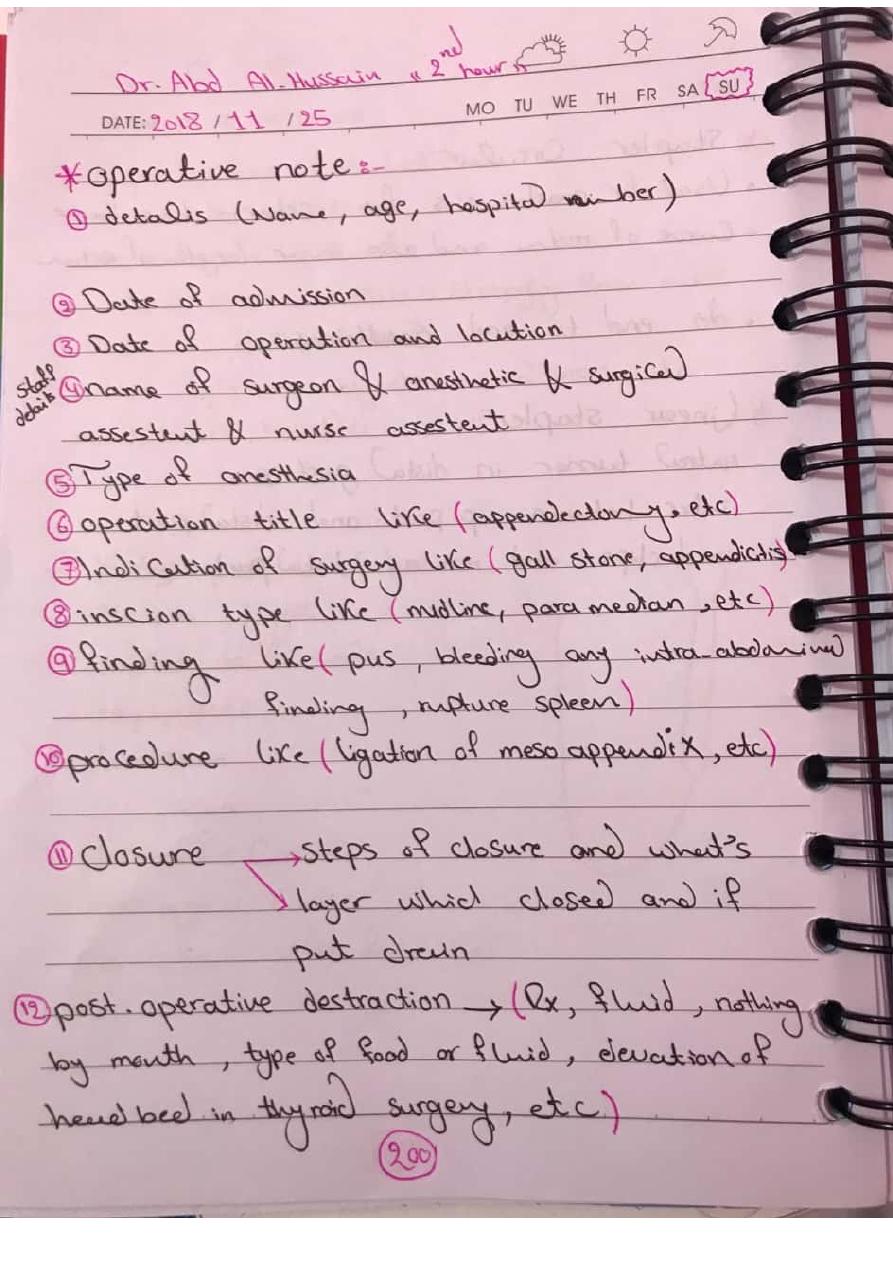 Dr. Abd Al-Hussain "2nd hour"
MO TU WE TH FR SA SU
DATE: 2018 / 11 / 25
* operative note :-
① detalis (Name, age, hospital number)
② Date of admission
③ Date of operation and locution
staff details
④ name of surgeon & anesthetic & surgical
assestent & nurse assestent
⑤ Type of anesthesia
⑥ operation title like (appendectomy, etc)
⑦ Indication of surgery like (gall stone, appendictis)
⑧ inscion type like (midline, para median, etc)
⑨ finding like ( pus, bleeding any intra-abdominal
finding, rupture spleen)
⑩ procedure like (ligation of meso appendix, etc)
⑪ closure → steps of closure and what's
↘ layer which closed and if
put drain
⑫ post.operative destraction → (Rx, fluid, nothing
by mouth, type of food or fluid, elevation of
head bed in thyroid surgery, etc)
200